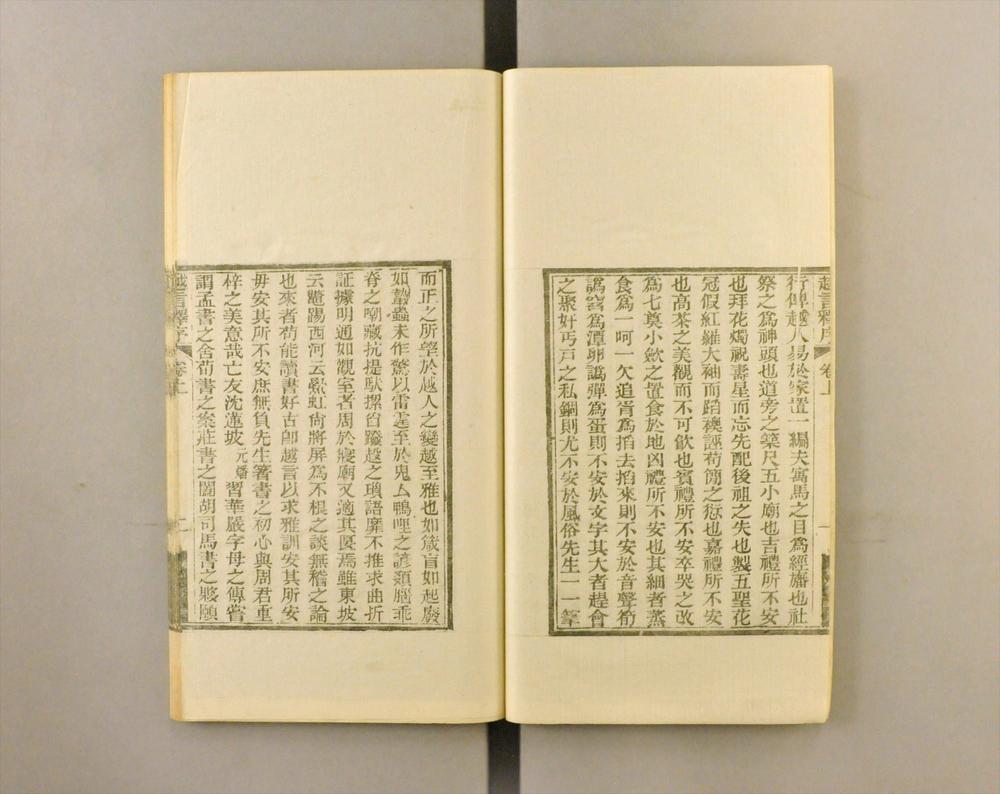 越言釋序 卷上 一
行俾越人易於家置一編夫寓馬之目為經旛也社
祭之為神頭也道旁之築尺五小廟也吉禮所不安
也拜花燭祝壽星而忘先配後祖之失也製五聖花
冠假紅羅大袖而蹈襖誣苟簡之愆也嘉禮所不安
也高茶之美觀而不可飲也賓禮所不安卒哭之改
為七奠小歛之置食於地凶禮所不安也其細者蒸
食為一呵一欠追胥為掐去掐來則不安於音聲筍
譌窩為潭卵譌彈為蛋則不安於文字其大者趕會
之聚奸丐戶之私錮則尤不安於風俗先生一一筆
而正之所望於越人之變越至雅也如箴盲如起廢
如蟄蟲未作驚以雷霆至於鬼厶鴨哩之諺纇牆乖
脊之嘲藏抗提馱摞台蹳越之瑣語靡不推求曲折
証據明通如觀室者周於寢廟又適其匽焉雖東坡
云鼈踢西河云㱿虹尙將屏為不根之談無稽之論
也來者苟能讀書好古卽越言以求雅訓安其所安
毋安其所不安庶無負先生著書之初心與周君重
梓之美意哉亡友沈蓮坡元燔習華嚴字母之傳嘗
謂孟書之舍荀書之案莊書之闘胡司馬書之夥頤
越言釋序 卷上 二